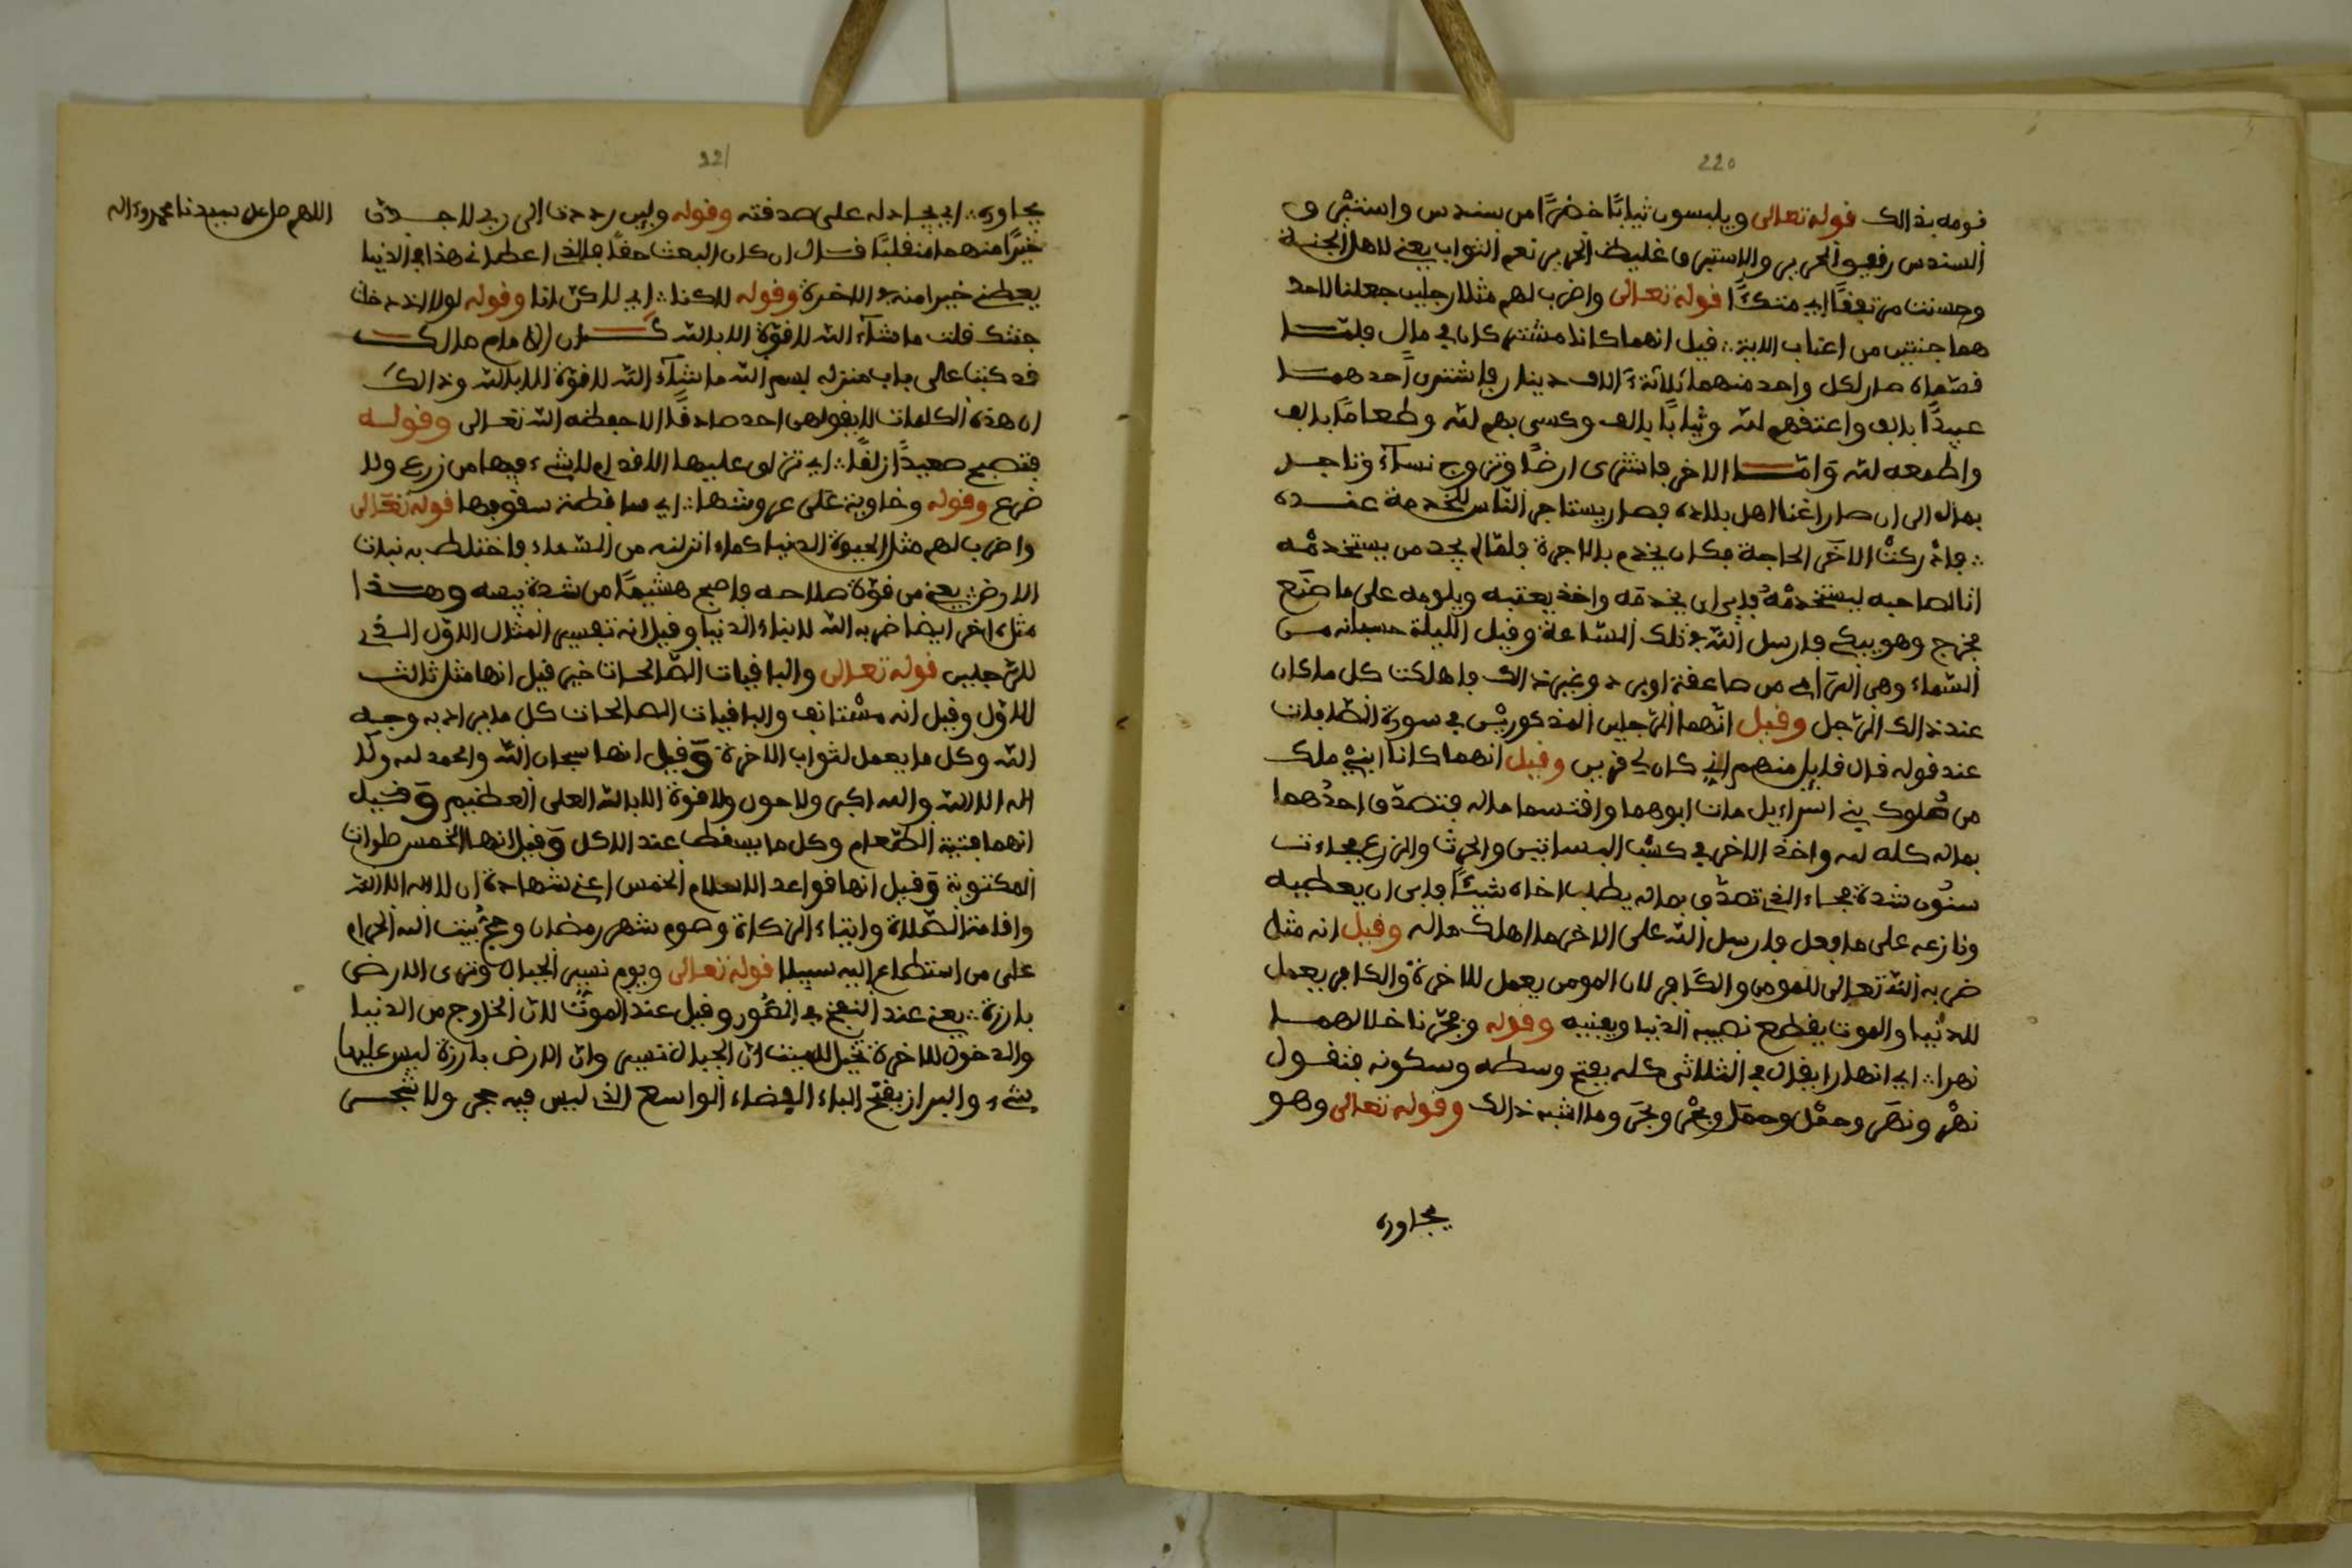 220
قومه بذالك قوله تعالى ويلبسون ثيابًا خضرًا من سندس واستبرق و
السندس رفيع الحرير والاستبرق غليظ الحرير نعم الثواب يعني لاهل الجنة
وحسنت مرتفقًا اي متكئًا قوله تعالى واضرب لهم مثلا رجلين جعلنا لاحد
هما جنتين من اعناب الاية قيل انهما كانا مشتركان في مال فلمّا
قسّماه صار لكل واحد منهما ثلاثة آلاف دينار فاشترى احدهما
عبيدًا بالف واعتقهم لله وثيابًا بالف وكسى بهم لله وطعامًا بالف
واطعمه لله وامّا الاخر فاشترى ارضًا وتزوج نساء وتاجر
بماله الى ان صار اغنا اهل بلاده فصار يستاجر الناس للخدمة عنده
فادركت الآخر الحاجة فكان يخدم بالاجرة فلمّا لم يجد من يستخدمه
اتا لصاحبه ليستخدمه فابى ان يخدمه واخذ يعتبه ويلومه على ما ضيّع
فخرج وهو يبكي فارسل الله في تلك الساعة وقيل الليلة حسبانه من
السّماء وهي المرامي من صاعقة او برد وغير ذالك فاهلكت كل ما كان
عند ذالك الرّجل وقيل انّهما الرّجلين المذكورين في سورة الصّافات
عند قوله قال قايل منهم اني كان لي قرين وقيل انهما كانا ابني ملك
من ملوك بني اسراءيل مات ابوهما واقتسما ماله فتصدّق احدهما
بماله كله لله واخذ الاخر في كسب البساتين والحرث والزرع فجاءت
سنون شدة فجاء الذي تصدّق بماله يطلب اخاه شيئًا فابى ان يعطيه
ونازعه على ما فعل فارسل الله على الاخر ما اهلك ماله وقيل انه مثل
ضربه الله تعالى للمومن والكافر لان المومن يعمل للاخرة والكافر يعمل
للدنيا والموت يقطع نصيبه الدنيا ويفنيه وقوله وفجّرنا خلالهما
نهرا اي انهارا يقال في الثلاثي كله بفتح وسطه وسكونه فتقول
نهْر ونهَر وحمْل وحمَل وبحْر وبحَر وما اشبه ذالك وقوله تعالى وهو
يحاوره
221
اللهم صل على سيدنا محمد وءاله
يحاوره اي يجادله على صدقته وقوله ولين رددت الى ربي لاجدن
خيرًا منهما منقلبًا قال ان كان البعث حقًا فالذي اعطاني هذا في الدنيا
يعطني خيرا منه في الاخرة وقوله لاكنا اي لاكن انا وقوله لولا اذ دخلت
جنتك قلت ما شاء الله لا قوّة الا بالله كان الامام مالك
قد كتب على باب منزله بسم الله ما شاء الله لا قوة الا بالله وذالك
ان هذه الكلمات لا يقولهن احد صادقًا الا حفظه الله تعالى وقوله
فتصبح صعيدًا زلقًا اي تزلق عليها الاقدام لا شيء فيها من زرع ولا
ضرع وقوله وخاوية على عروشها اي ساقطة سقوفها قوله تعالى
واضرب لهم مثل الحيوة الدنيا كماء انزلنه من السّماء فاختلط به نبات
الارض يعني من قوّة صلاحه فاصبح هشيمًا من شدة يبسه وهذا
مثل اخر ايضا ضربه الله لابناء الدنيا وقيل انه تفسير المثال الاوّل الذي
للرّجلين قوله تعالى والباقيات الصّالحات خير قيل انها مثل ثالث
للاوّل وقيل انه مستانف والباقيات الصالحات كل ما يراد به وجه
الله وكل ما يعمل لثواب الاخرة وقيل انها سبحان الله والحمد لله ولا
اله الا الله والله اكبر ولا حول ولا قوة الا بالله العلى العظيم وقيل
انهما فتية الطّعام وكل ما يسقط عند الاكل وقيل انها الخمس صلوات
المكتوبة وقيل انها قواعد الاسلام الخمس اعني شهادة ان لا اله الا الله
واقامة الصّلاة وايتاء الزكاة وصوم شهر رمضان وحج بيت الله الحرام
على من استطاع اليه سبيلا قوله تعالى ويوم تسير الجبال وترى الارض
بارزة يعني عند النفخ في الصّور وقيل عند الموت لانّ الخارج من الدنيا
والدخول للاخرة تخيل للميت انّ الجبال تسير وانّ الارض بارزة ليس عليها
شيء والبراز بفتح الباء الفضاء الواسع الذي ليس فيه حجر ولا شجر